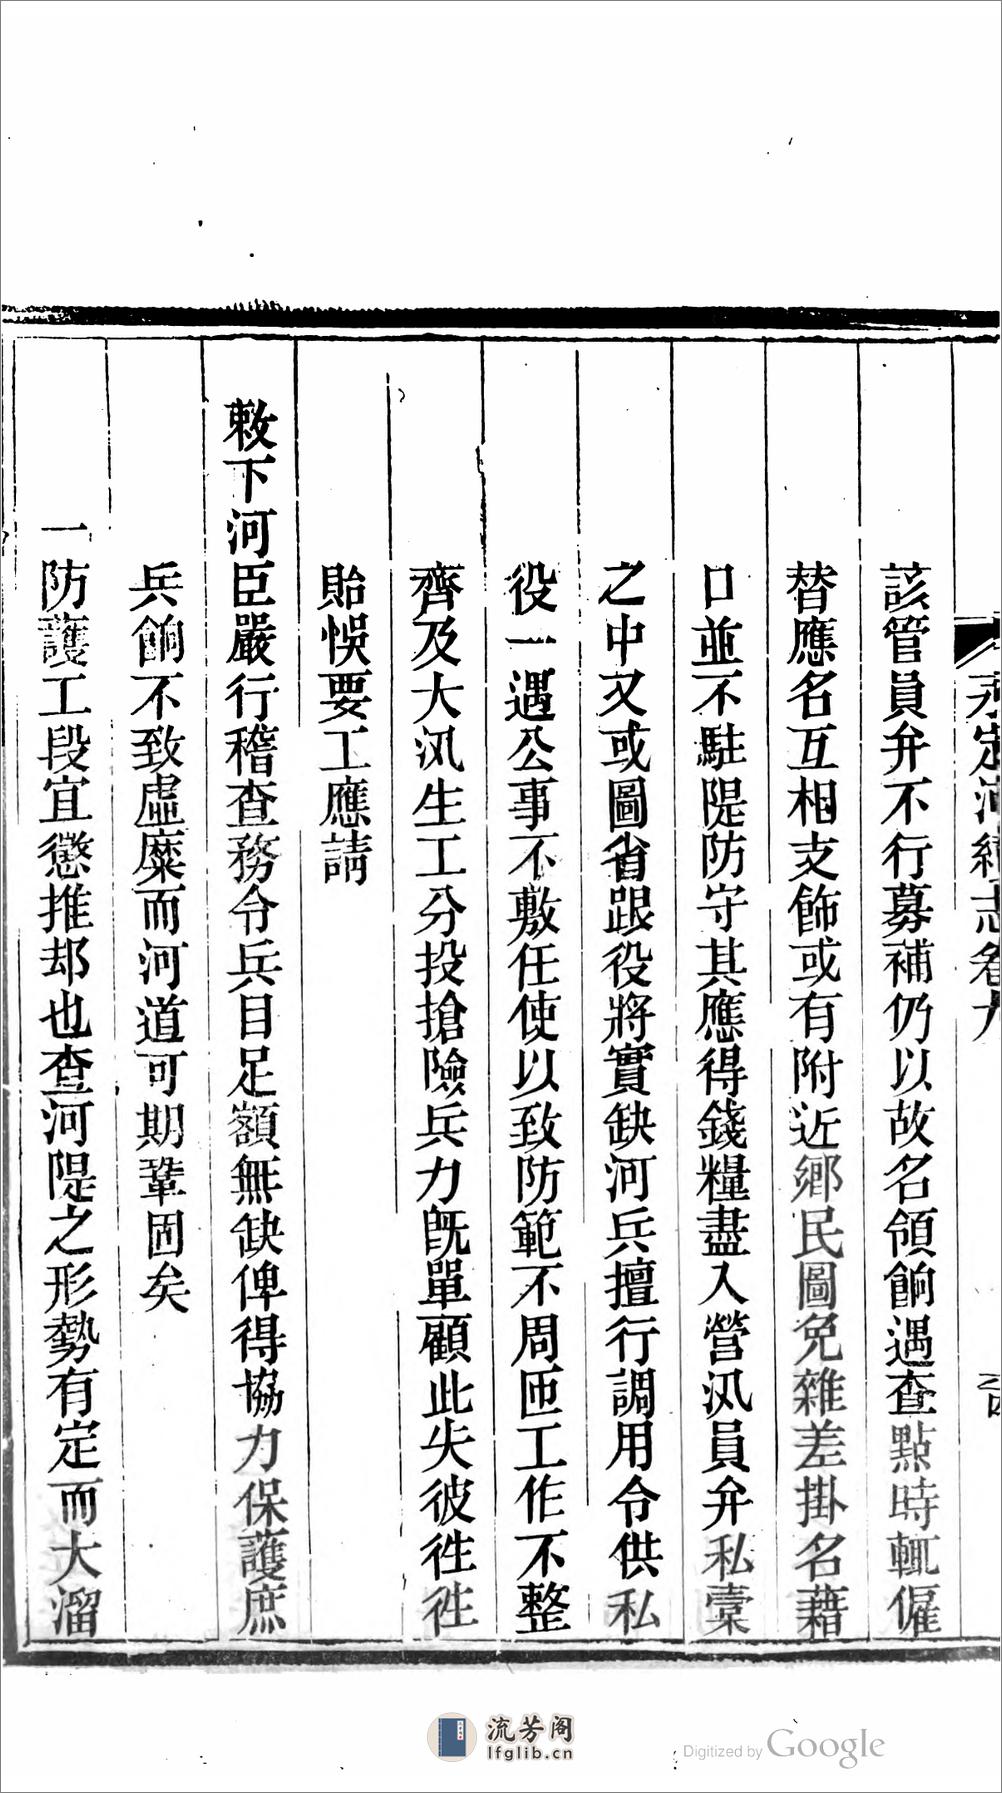 永定河續志卷九
該管員弁不行募補仍以故名領餉遇查點時輒僱
替應名互相支飾或有附近鄉民圖免雜差掛名藉
口並不駐隄防守其應得錢糧盡入營汛員弁私橐
之中又或圖省跟役將實缺河兵擅行調用令供私
役一遇公事不敷任使以致防範不周匝工作不整
齊及大汛生工分投搶險兵力旣單顧此失彼徃徃
貽悞要工應請
敕下河臣嚴行稽查務令兵目足額無缺俾得協力保護庶
兵餉不致虛糜而河道可期鞏固矣
一防護工段宜懲推却也查河隄之形勢有定而大溜
流芳阁
lfglib.cn
Digitized by Google